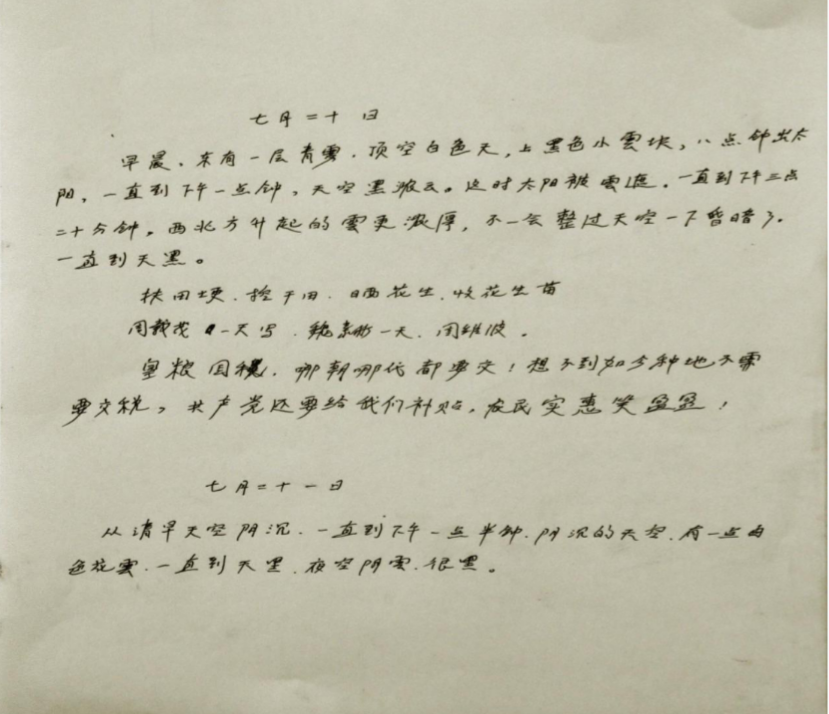 七月二十日
早晨、东有一层青雲、顶空白色天,上黑色小雲块,八点钟出太
阳,一直到下午一点钟,天空黑波云。这时太阳被雲遮,一直到下午三点
二十分钟,西北方升起的雲更浓厚,不一会整过天空一下昏暗了,
一直到天黑。
扶田埂、挖干田、晒花生、收花生苗
一天
皇粮国税,哪朝哪代都要交!想不到如今种地不需
要交税,共产党还要给我们补贴,农民实惠笑盈盈!
七月二十一日
从清早天空阴沉、一直到下午一点半钟、阴沉的天空、有一点白
色花雲、一直到天黑、夜空阴雲、很黑。